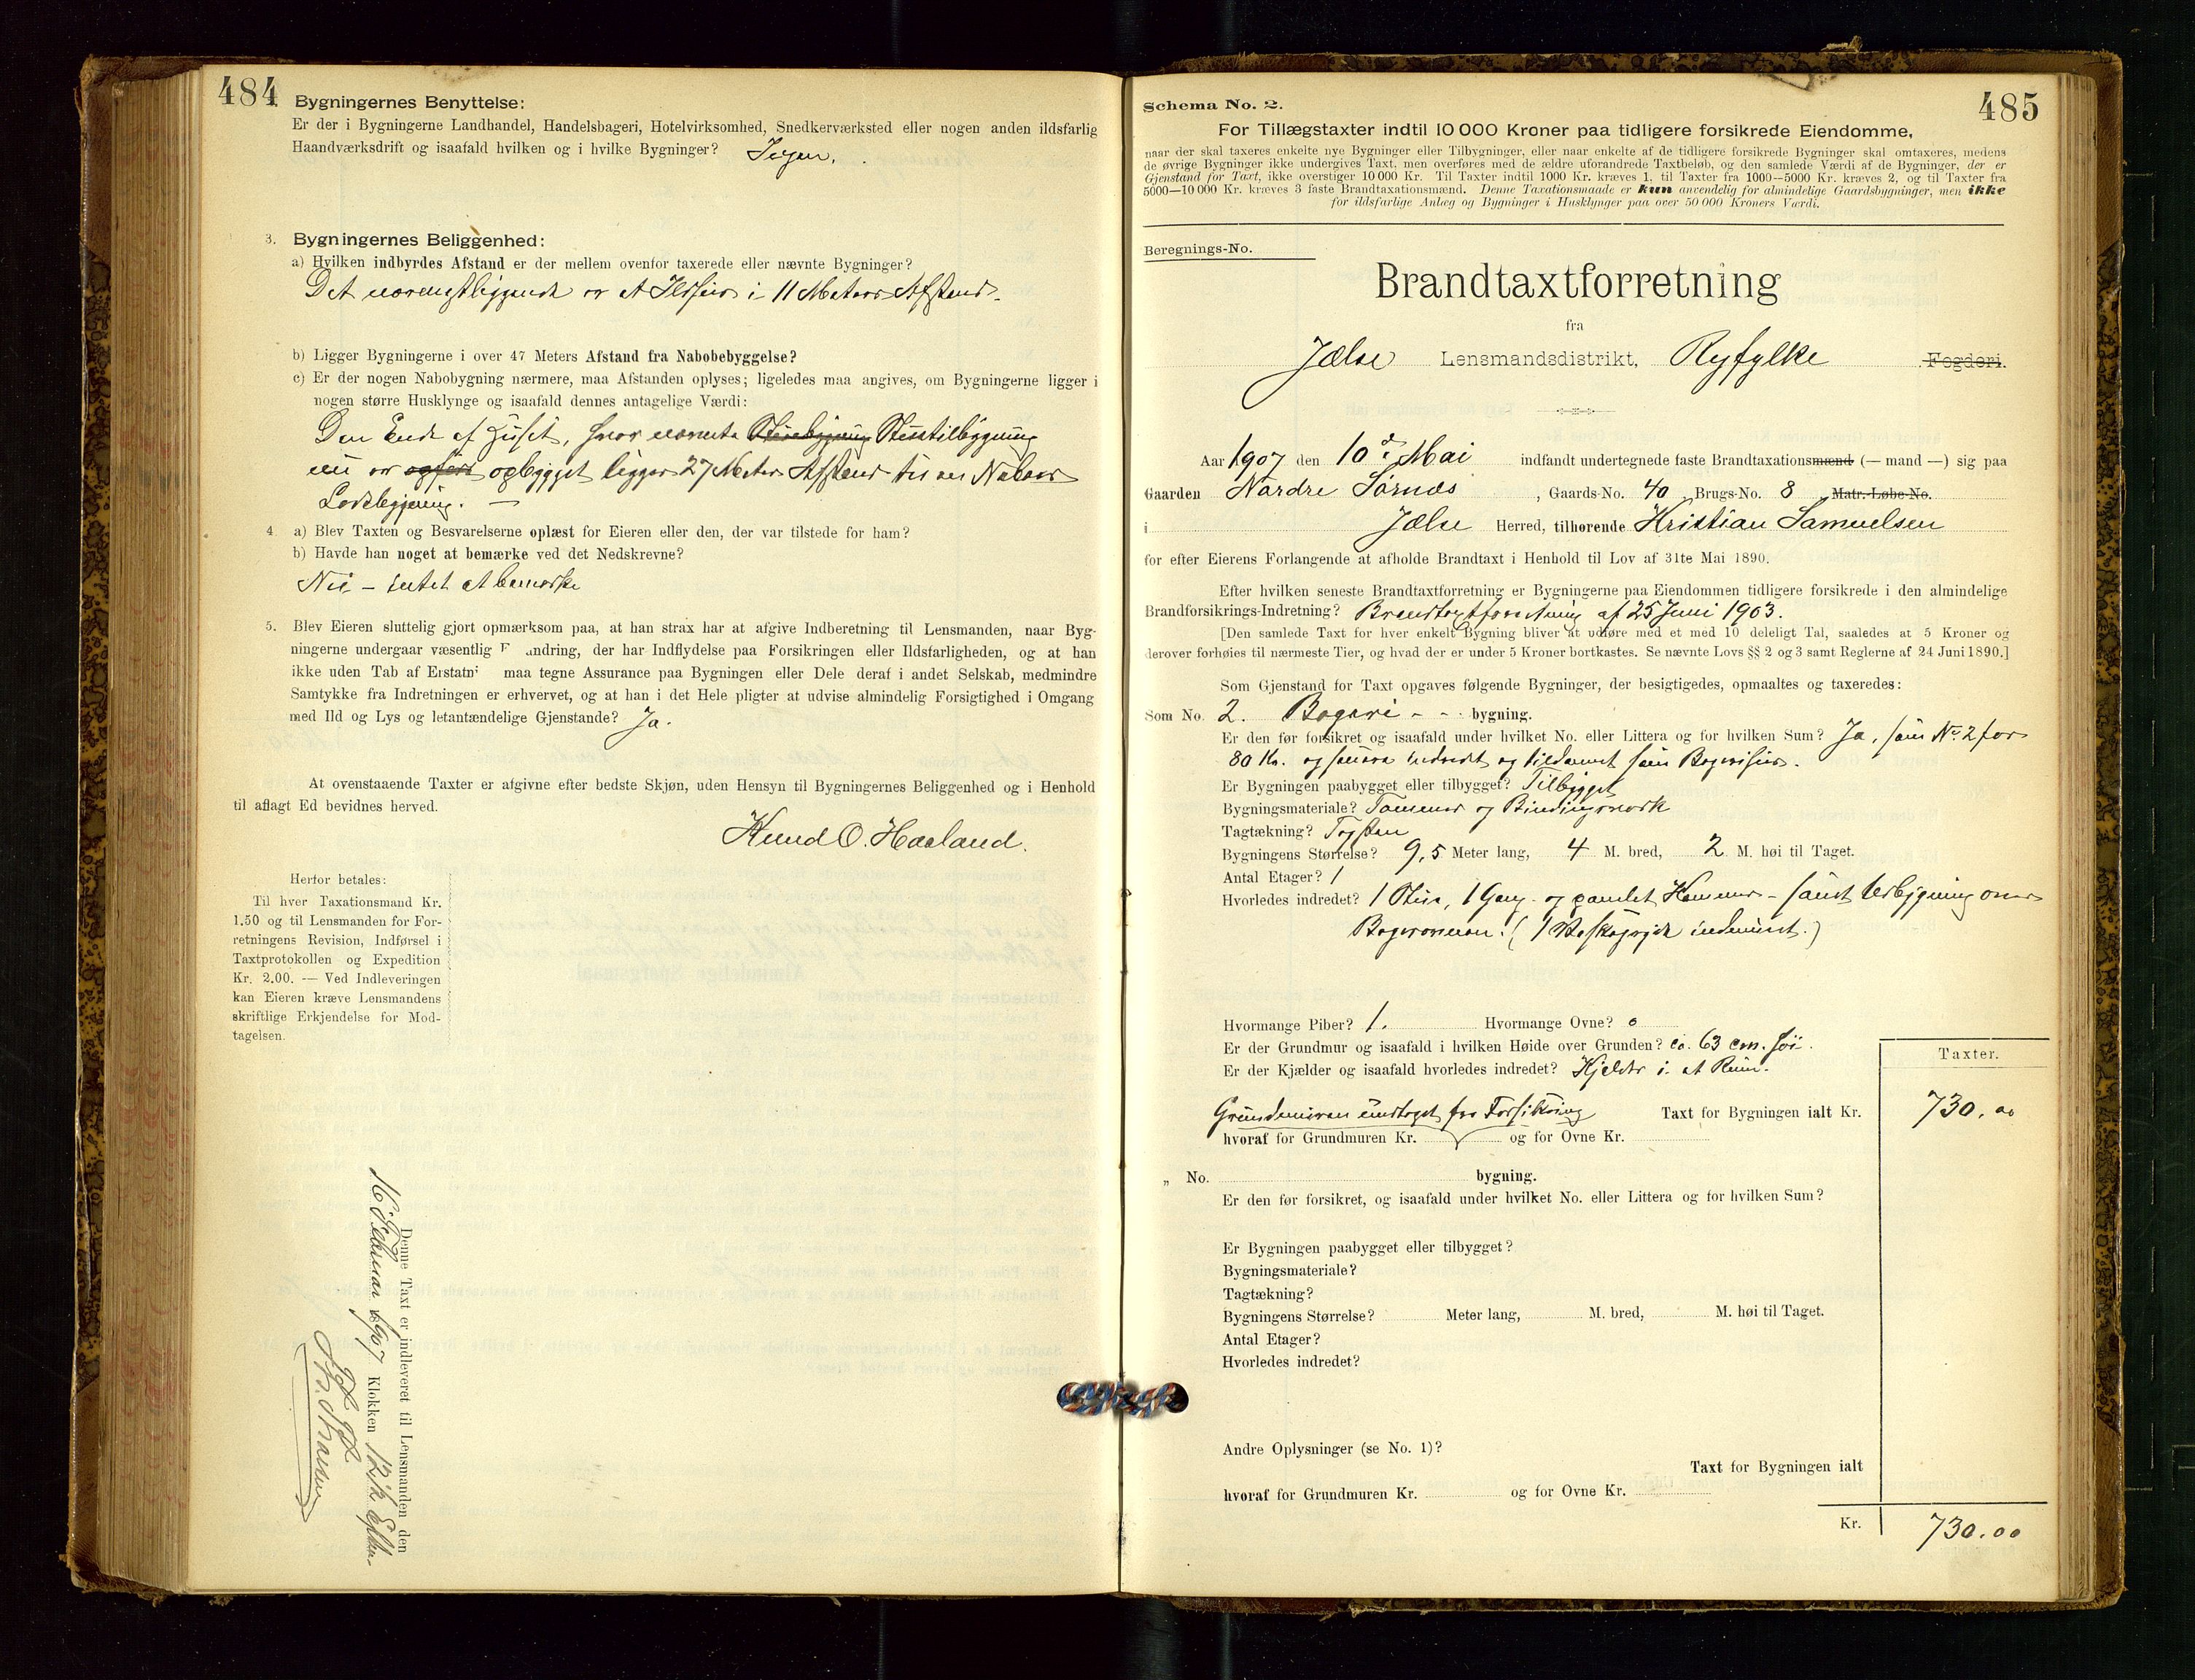 484
Bygningernes Benyttelse:
Er der i Bygningerne Landhandel, Handelsbageri, Hotelvirksomhed, Snedkerværksted eller nogen anden ildsfarlig
Haandværksdrift og isaafald hvilken og i hvilke Bygninger? Ingen.
3. Bygningernes Beliggenhed:
a) Hvilken indbyrdes Afstand er der mellem ovenfor taxerede eller nævnte Bygninger?
Det nærmestliggende er et Ildhus i 11 Meters Afstand.
b) Ligger Bygningerne i over 47 Meters Afstand fra Nabobebyggelse?
c) Er der nogen Nabobygning nærmere, maa Afstanden oplyses; ligeledes maa angives, om Bygningerne ligger i
nogen større Husklynge og isaafald dennes antagelige Værdi:
Den Ende af Huset, hvor nævnte Stuebygning Stuetilbygning
nu er opført opbygget ligger 27 Meter Afstand til en Nabos
Ladebygning. —
4. a) Blev Taxten og Besvarelserne oplæst for Eieren eller den, der var tilstede for ham?
b) Havde han noget at bemærke ved det Nedskrevne?
Nei – intet at bemærke
5. Blev Eieren sluttelig gjort opmærksom paa, at han strax har at afgive Indberetning til Lensmanden, naar Byg-
ningerne undergaar væsentlig F andring, der har Indflydelse paa Forsikringen eller Ildsfarligheden, og at han
ikke uden Tab af Erstatni maa tegne Assurance paa Bygningen eller Dele deraf i andet Selskab, medmindre
Samtykke fra Indretningen er erhvervet, og at han i det Hele pligter at udvise almindelig Forsigtighed i Omgang
med Ild og Lys og letantændelige Gjenstande? Ja.
At ovenstaaende Taxter er afgivne efter bedste Skjøn, uden Hensyn til Bygningernes Beliggenhed og i Henhold
til aflagt Ed bevidnes herved.
Knud O. Haaland.
Herfor betales:
Til hver Taxationsmand Kr.
1.50 og til Lensmanden for For-
retningens Revision, Indførsel i
Taxtprotokollen og Expedition
Kr. 2.00. — Ved Indleveringen
kan Eieren kræve Lensmandens
skriftlige Erkjendelse for Mod-
tagelsen.
Denne Taxt er indleveret til Lensmanden den
16 Februar 1907 Klokken 12 1/2 Efterm.
485
Schema No. 2.
For Tillægstaxter indtil 10 000 Kroner paa tidligere forsikrede Eiendomme,
naar der skal taxeres enkelte nye Bygninger eller Tilbygninger, eller naar enkelte af de tidligere forsikrede Bygninger skal omtaxeres, medens
de øvrige Bygninger ikke undergives Taxt, men overføres med de ældre uforandrede Taxtbeløb, og den samlede Værdi af de Bygninger, der er
Gjenstand for Taxt, ikke overstiger 10 000 Kr. Til Taxter indtil 1000 Kr. kræves 1, til Taxter fra 1000—5000 Kr. kræves 2, og til Taxter fra
5000—10 000 Kr. kræves 3 faste Brandtaxationsmænd. Denne Taxationsmaade er kun anvendelig for almindelige Gaardsbygninger, men ikke
for ildsfarlige Anlæg og Bygninger i Husklynger paa over 50 000 Kroners Værdi.
Beregnings-No.
Brandtaxtforretning
fra
Jælse Lensmandsdistrikt, Ryfylke Fogderi.
Aar 1907 den 10de Mai indfandt undertegnede faste Brandtaxationsmænd (— mand —) sig paa
Gaarden Nordre Sørnæs, Gaards-No. 40 Brugs-No. 8 Matr.-Løbe-No.
i Jælse Herred, tilhørende Kristian Samuelsen
for efter Eierens Forlangende at afholde Brandtaxt i Henhold til Lov af 31te Mai 1890.
Efter hvilken seneste Brandtaxtforretning er Bygningerne paa Eiendommen tidligere forsikrede i den almindelige
Brandforsikrings-Indretning? Brandtaxtforretning af 25 Juni 1903.
[Den samlede Taxt for hver enkelt Bygning bliver at udføre med et med 10 deleligt Tal, saaledes at 5 Kroner og
derover forhøies til nærmeste Tier, og hvad der er under 5 Kroner bortkastes. Se nævnte Lovs §§ 2 og 3 samt Reglerne af 24 Juni 1890.]
Som Gjenstand for Taxt opgaves følgende Bygninger, der besigtigedes, opmaaltes og taxeredes:
Som No. 2. Bageri - - bygning.
Er den før forsikret og isaafald under hvilket No. eller Littera og for hvilken Sum? Ja, som No 2 for
80 Kr. og senere indredt og tildannet som Bagerihus.
Er Bygningen paabygget eller tilbygget? Tilbygget
Bygningsmateriale? Tømmer og Bindingsværk
Tagtækning? Tagsten
Bygningens Størrelse? 9,5 Meter lang, 4 M. bred, 2 M. høi til Taget.
Antal Etager? 1
Hvorledes indredet? 1 Stue, 1 Gang og gamlet Kammer – samt Udbygning over
Bagerovnen. (1 Bakstegryde indmuret.)
Hvormange Piber? 1. Hvormange Ovne? 0
Er der Grundmur og isaafald i hvilken Høide over Grunden? ca. 63 cm. høi.
Er der Kjælder og isaafald hvorledes indredet? Kjelder i et Rum.
Grundmuren undtaget fra Forsikring Taxt for Bygningen ialt Kr.
hvoraf for Grundmuren Kr. og for Ovne Kr.
Taxter.
730.00
„ No. bygning.
Er den før forsikret, og isaafald under hvilket No. eller Littera og for hvilken Sum?
Er Bygningen paabygget eller tilbygget?
Bygningsmateriale?
Tagtækning?
Bygningens Størrelse? Meter lang, M. bred, M. høi til Taget.
Antal Etager?
Hvorledes indredet?
Andre Oplysninger (se No. 1)?
Taxt for Bygningen ialt
hvoraf for Grundmuren Kr. og for Ovne Kr.
Kr. 730.00